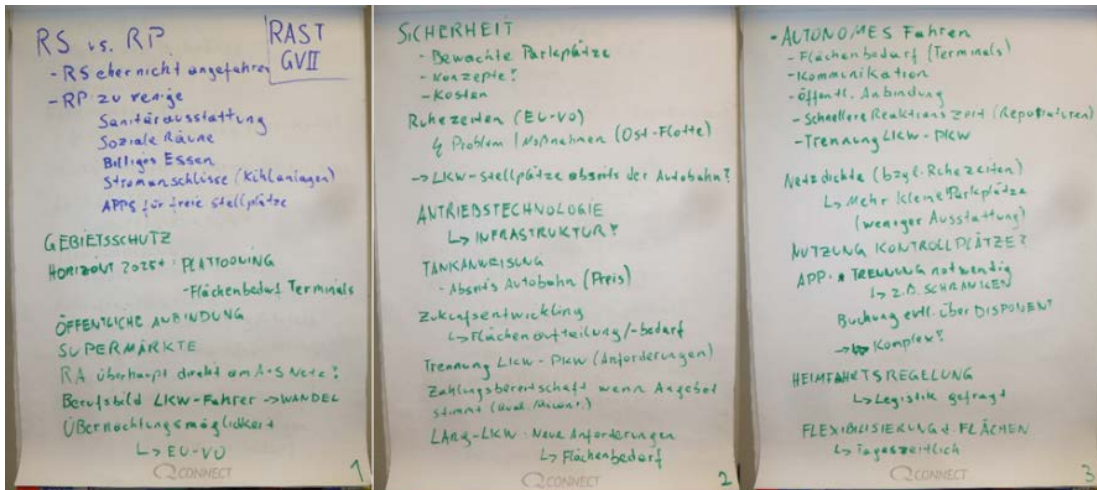 RS vs. RP
RAST
GVII
- RS eher nicht angefahren
- RP zu wenige
Sanitärausstattung
Soziale Räume
Billiges Essen
Stromanschlüsse (Kühlanlagen)
APPS für freie Stellplätze
GEBIETSSCHUTZ
HORIZONT 2025+: PLATTOONING
- Flächenbedarf Terminals
ÖFFENTLICHE ANBINDUNG
SUPERMÄRKTE
RA überhaupt direkt am A+S Netz?
Berufsbild LKW-Fahrer → WANDEL
Übernachtungsmöglichkeit
↳ EU-VO
Q CONNECT
1
SICHERHEIT
- Bewachte Parkplätze
- Konzepte?
- Kosten
Ruhezeiten (EU-VO)
↳ Problem / Maßnahmen (Ost-Flotte)
→ LKW-Stellplätze abseits der Autobahn?
ANTRIEBSTECHNOLOGIE
↳ INFRASTRUKTUR?
TANKANWEISUNG
- Abseits Autobahn (Preis)
Zukunftsentwicklung
↳ Flächenaufteilung/-bedarf
Trennung LKW - PKW (Anforderungen)
Zahlungsbereitschaft wenn Angebot
stimmt
LANG-LKW: Neue Anforderungen
↳ Flächenbedarf
Q CONNECT
2
- AUTONOMES Fahren
- Flächenbedarf (Terminals)
- Kommunikation
- Öffentl. Anbindung
- Schnellere Reaktionszeit (Reparaturen)
- Trennung LKW - PKW
Netzdichte (bzgl. Ruhezeiten)
↳ Mehr kleine Parkplätze
(weniger Ausstattung)
NUTZUNG KONTROLLPLÄTZE?
APP: TRENNUNG notwendig
↳ z.B. SCHRANKEN
Buchung evtl. über DISPONENT
→ Komplex?
HEIMFAHRTSREGELUNG
↳ Logistik gefragt
FLEXIBILISIERUNG d. FLÄCHEN
↳ Tageszeitlich
Q CONNECT
3